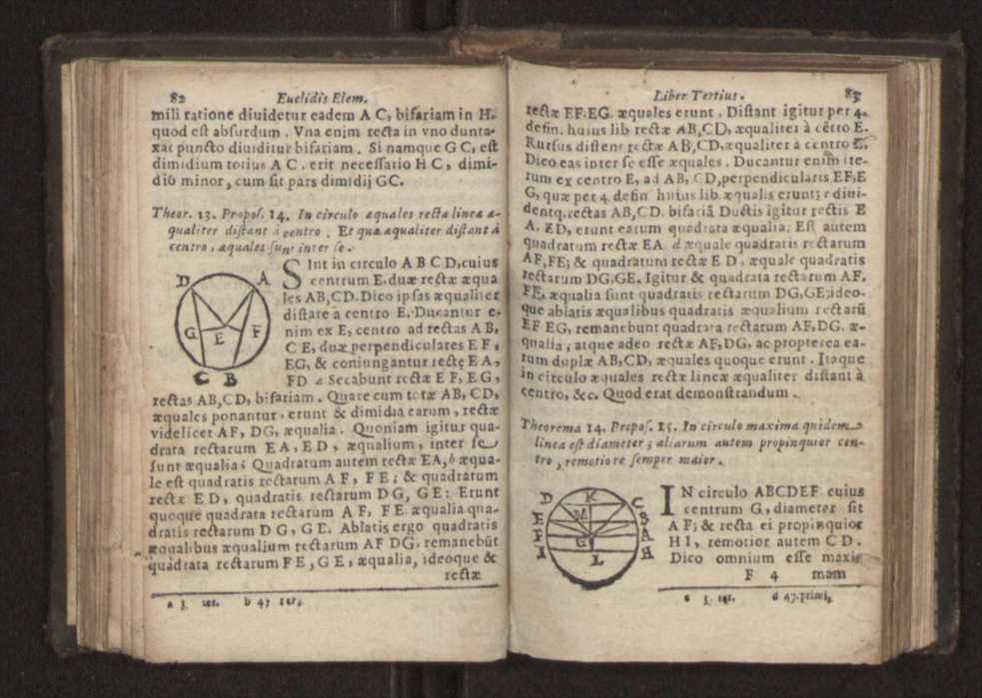 82 Euclidis Elem.
mili ratione diuidetur eadem A C, bifariam in H.
quod est absurdum. Vna enim recta in vno dunta-
xat puncto diuiditur bifariam. Si namque G C, est
dimidium totius A C. erit necessario H C, dimi-
dio minor, cum sit pars dimidij GC.
Theor. 13. Propos. 14. In circulo æquales rectæ lineæ æ-
qualiter distant à centro. Et quæ æqualiter distant à
centro, æquales sunt inter se.
SInt in circulo A B C D, cuius
centrum E. duæ rectæ æqua
les AB, CD. Dico ipsas æqualiter
distare a centro E. Ducantur e-
nim ex E, centro ad rectas A B,
C E, duæ perpendiculares E F,
EG, & coniungantur rectę E A,
FD a Secabunt rectæ E F, E G,
D A
G E F
C B
rectas AB, CD, bifariam. Quare cum totæ AB, CD,
æquales ponantur, erunt & dimidia earum, rectæ
videlicet AF, DG, æqualia. Quoniam igitur qua-
drata rectarum EA, ED, æqualium, inter se
sunt æqualia; Quadratum autem rectæ EA, b æqua-
le est quadratis rectarum A F, F E; & quadratum
rectæ E D, quadratis rectarum D G, G E: Erunt
quoque quadrata rectarum A F, F E æqualia qua-
dratis rectarum D G, G E. Ablatis ergo quadratis
æqualibus æqualium rectarum AF DG. remanebūt
quadrata rectarum F E, G E, æqualia, ideoque &
rectæ
a 3. ter. b 47
Liber Tertius. 83
rectæ EF. EG. æquales erunt. Distant igitur per 4.
defin. huius lib rectæ AB, CD, æqualiter à cētro E.
Rursus distent rectæ A B, CD, æqualiter à centro E.
Dico eas inter se esse æquales. Ducantur enim ite-
rum ex centro E, ad AB, CD, perpendicularis EF; E
G, quæ per 4. defin huius lib. æqualis erunt; &
dentq. rectas AB, CD. bifariā Ductis igitur rectis E
A, ED, erunt earum quadrata æqualia. Est autem
quadratum rectæ EA d æquale quadratis rectarum
AF, FE; & quadratum rectæ E D, æquale quadratis
rectarum DG, GE. Igitur & quadrata rectarum AF,
FE, æqualia sunt quadratis rectarum DG, GE; ideo-
que ablatis æqualibus quadratis æqualium rectarū
EF EG, remanebunt quadrata rectarum AF, DG. æ-
qualia; atque adeo rectæ AF, DG, ac propterea ea-
rum duplæ AB, CD, æquales quoque erunt. Itaque
in circulo æquales rectæ lineæ æqualiter distant à
centro, &c. Quod erat demonstrandum.
Theorema 14. Propos. 15. In circulo maxima quidem
linea est diameter; aliarum autem propinquior cen-
tro, remotiore semper maior.
IN circulo ABCDEF cuius
centrum G, diameter sit
A F; & recta ei propinquior
H I, remotior autem C D.
Dico omnium esse maxi-
D K C
E M B
F G A
I L H
F 4 mam
a 3. d 47. primi,